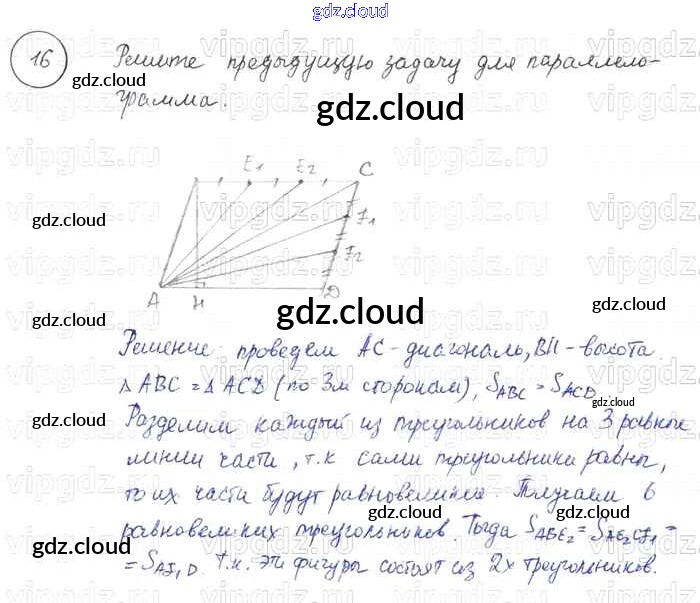 gdz.cloud
16 Решите предыдущую задачу для параллело-
грамма.
gdz.cloud
gdz.cloud
gdz.cloud
E1 E2 C
gdz.cloud
gdz.cloud
F1
F2
A H D
gdz.cloud
gdz.cloud
gdz.cloud
Решение: проведем AC-диагональ, BH-высота.
△ABC = △ACD (по 3м сторонам), SABC = SACD
gdz.cloud
Разделим каждый из треугольников на 3 равно
линии части, т.к сами треугольники равны,
то их части будут равновелики. Получаем 6
равновеликих треугольников. Тогда SABE2 = SAE2CF1 =
gdz.cloud
gdz.cloud
gdz.cloud
= SAF1D. т.к. эти фигуры состоят из 2х треугольников.
vipgdz.ru